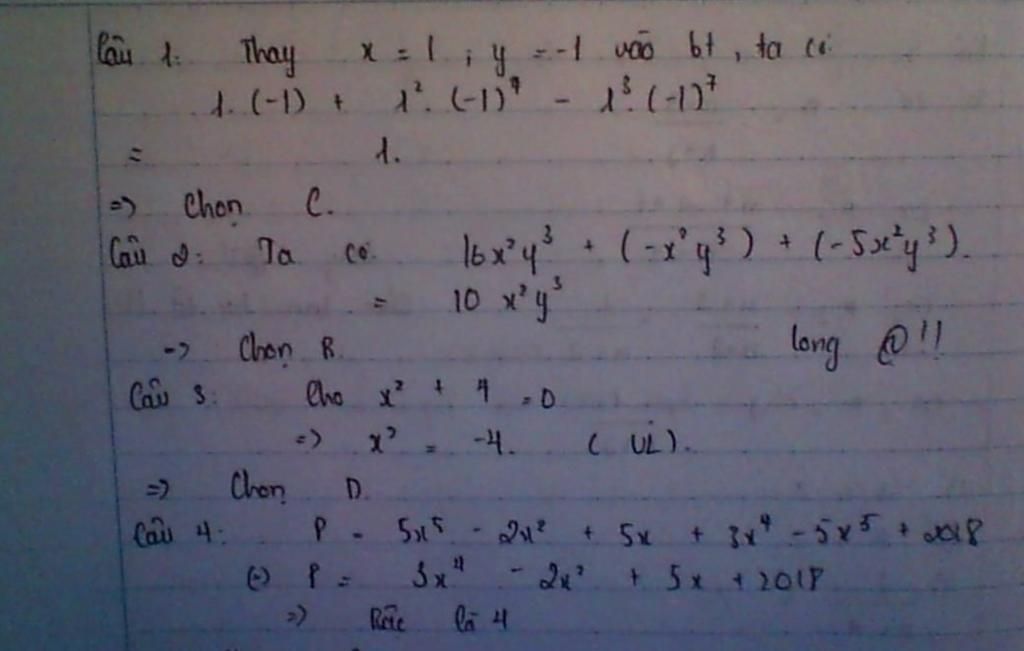 Câu 1: Thay x = 1 ; y = -1 vào bt, ta có
1.(-1) + 1². (-1)⁷ - 1³. (-1)⁷
= 1.
=> Chọn C.
Câu 2: Ta có 16x²y³ + (-x²y³) + (-5x²y³).
= 10 x²y³
-> Chọn B. long @!!
Câu 3: Cho x² + 4 = 0
=> x² = -4. (VL).
=> Chọn D.
Câu 4: P = 5x⁵ - 2x² + 5x + 3x⁴ - 5x⁵ + 2018
(=) P = 3x⁴ - 2x² + 5x + 2018
=> Bậc là 4